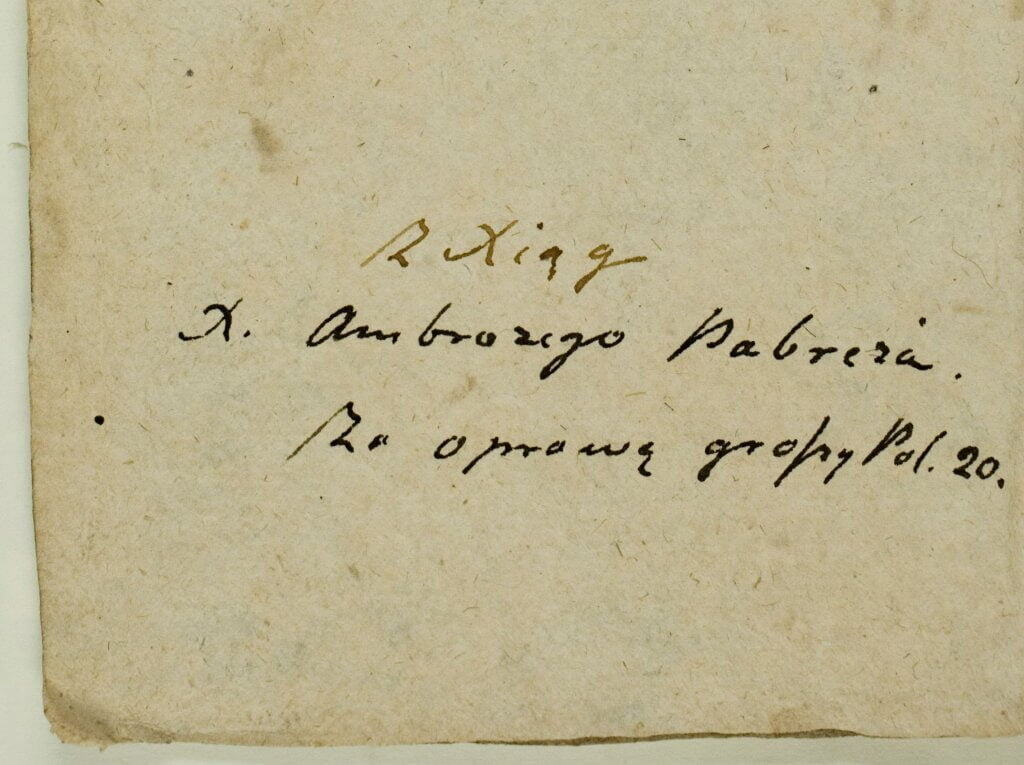 Z Xiąg
X. Ambrozego Pabreża.
Za oprawę groſzy Pol. 20.